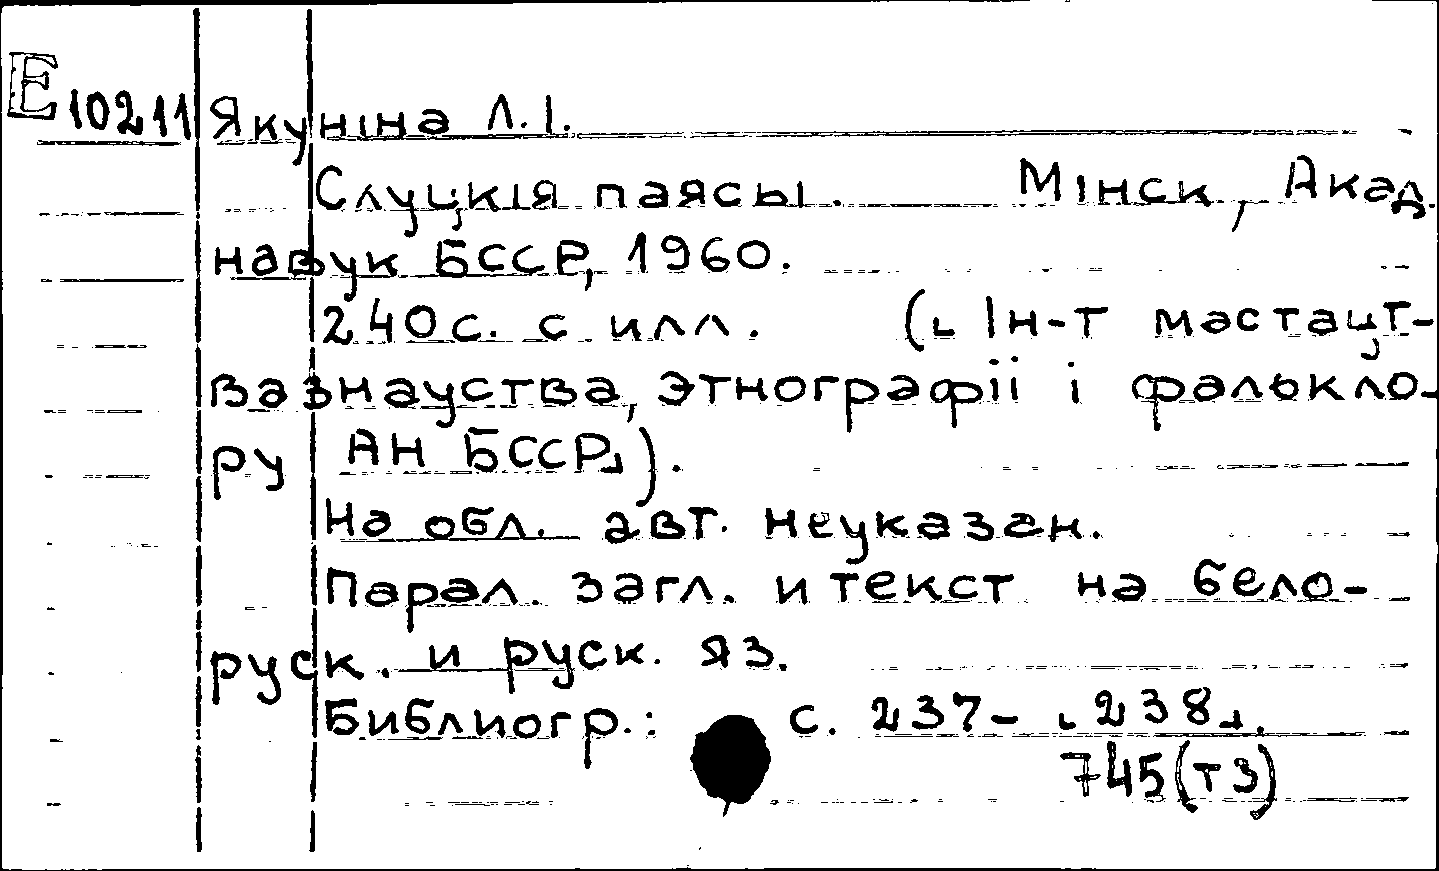 E 10211 Якуніна Л. І.
Слуцкія паясы. Мінск, Акад.
навук БССР, 1960.
240 с. с илл. (⌞Ін-т мастацт-
вазнауства, этнографіі і фалькло-
ру АН БССР⌟).
На обл. авт. неуказан.
Парал. загл. и текст на бело-
руск. и руск. яз.
Библиогр.: с. 237-⌞238⌟.
745(т3)